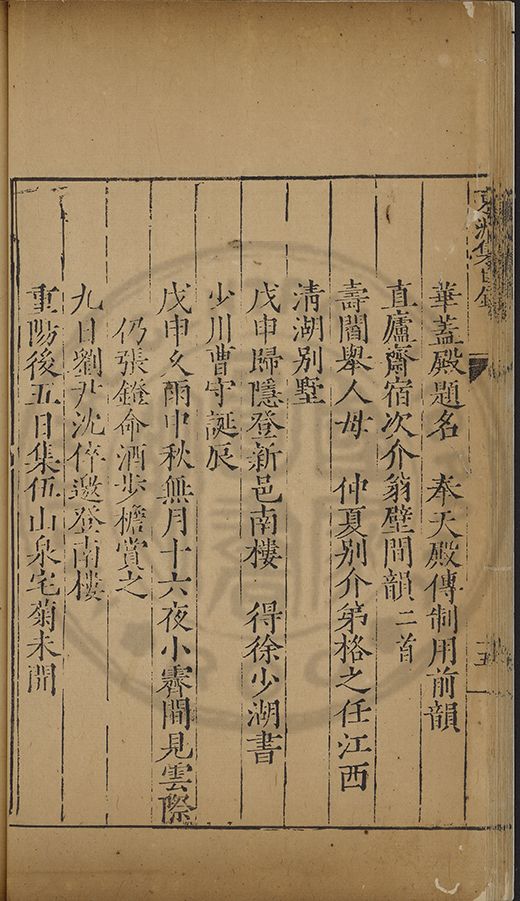 華蓋殿題名　奉天殿傳制用前韻
直廬齋宿次介翁壁間韻二首
壽閻舉人母　仲夏别介弟格之任江西
清湖别墅
戊申歸隱登新邑南樓　得徐少湖書
少川曹守誕辰
戊申久雨中秋無月十六夜小霽間見雲際
仍張鐙命酒步檐賞之
九日劉尹沈倅邀登南樓
重陽後五日集伍山泉宅菊未開